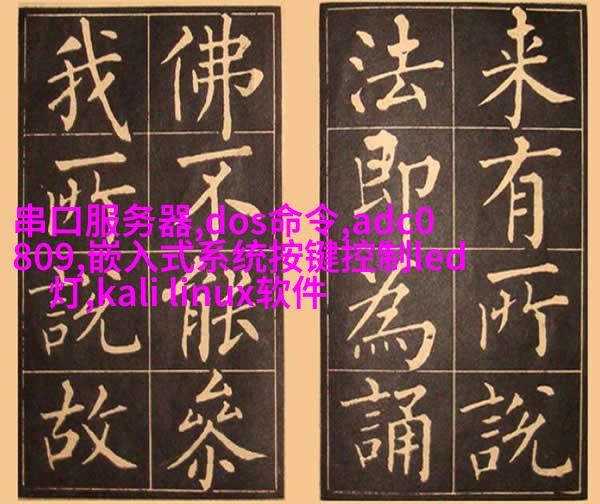 来有所說
法即為誦
佛不能叅
我所說故
串口服务器,dos命令,adc0
809,嵌入式系统按键控制led
灯,kali linux软件